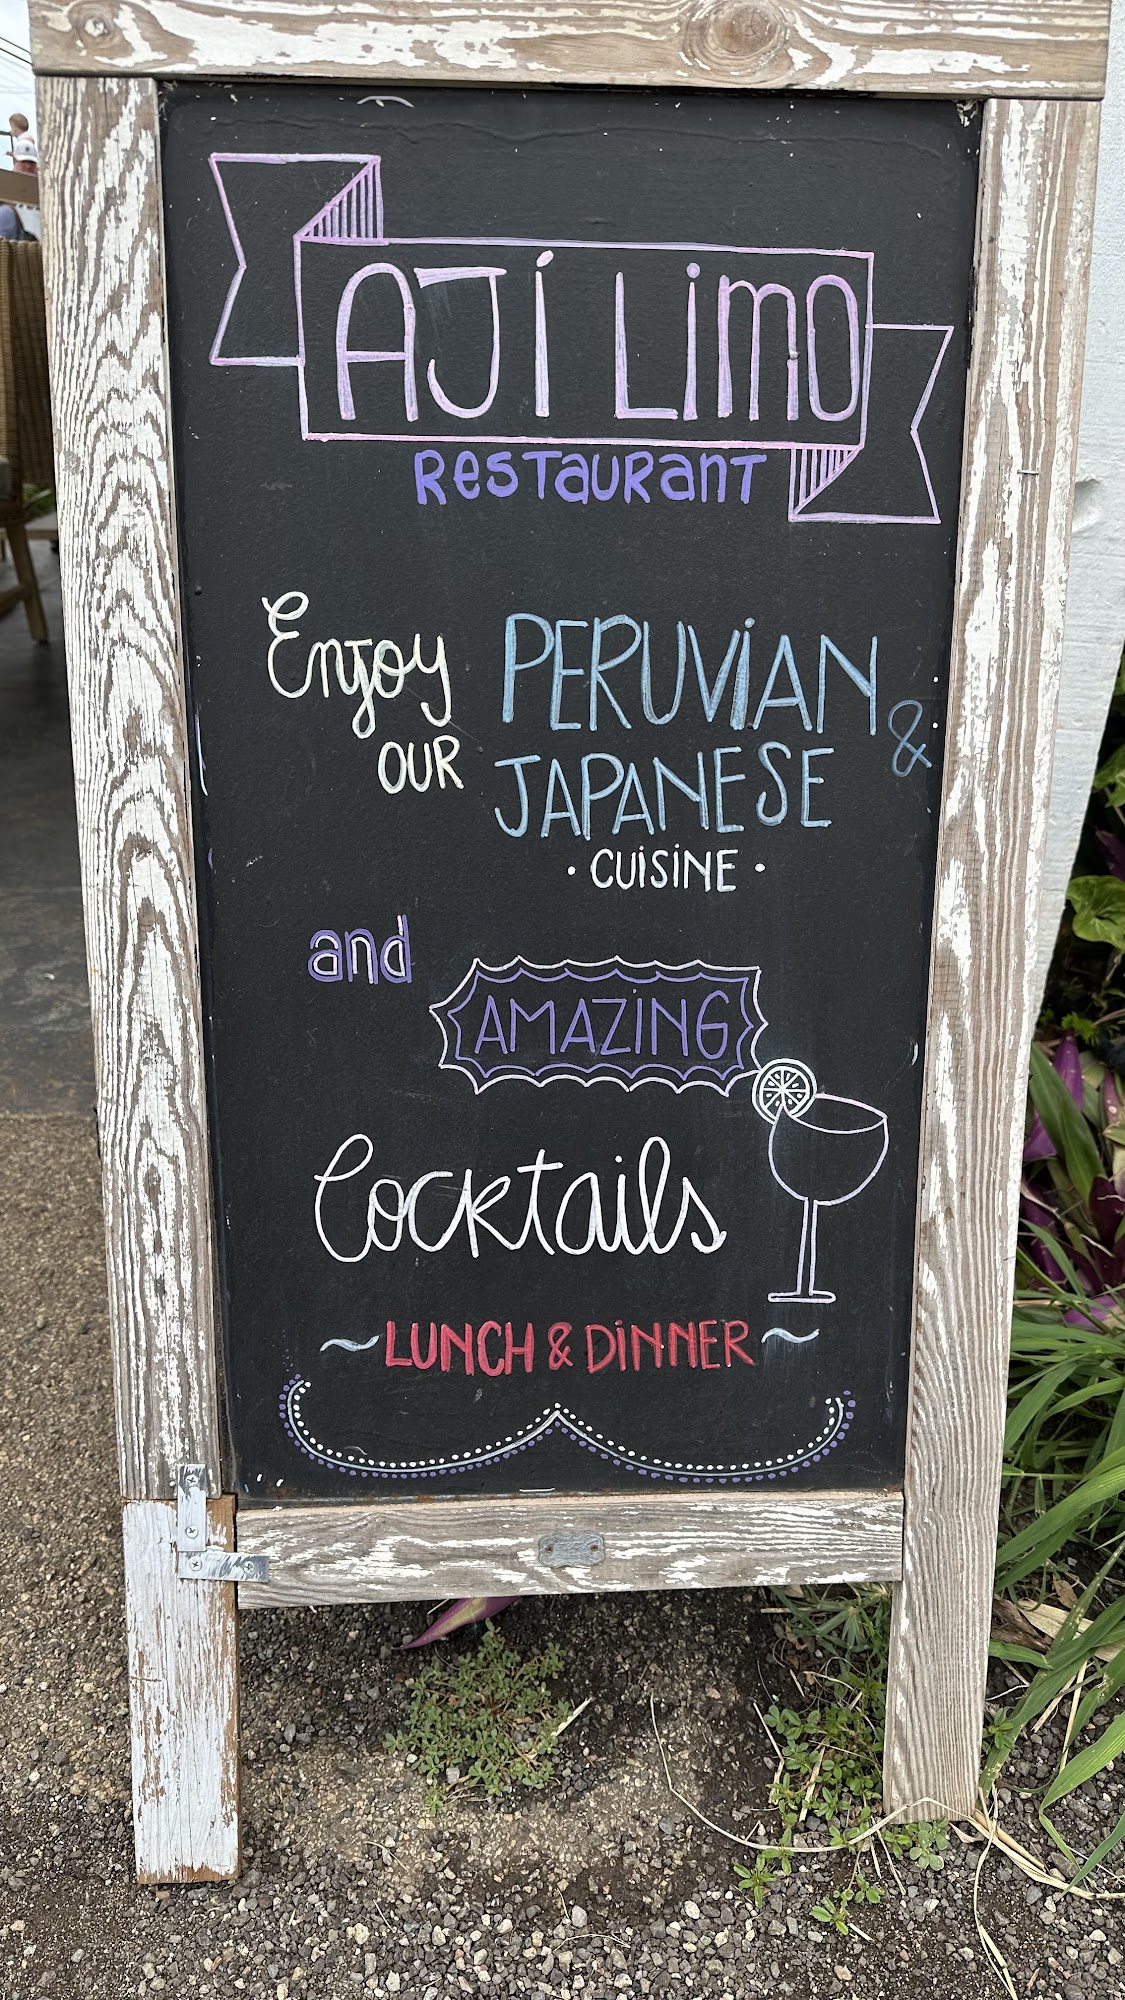 AJÍ LiMO
RESTAURANT
Enjoy PERUViAN &
OUR JAPANESE
· CUiSiNE ·
and
AMAZiNG
Cocktails
~ LUNCH & DiNNER ~